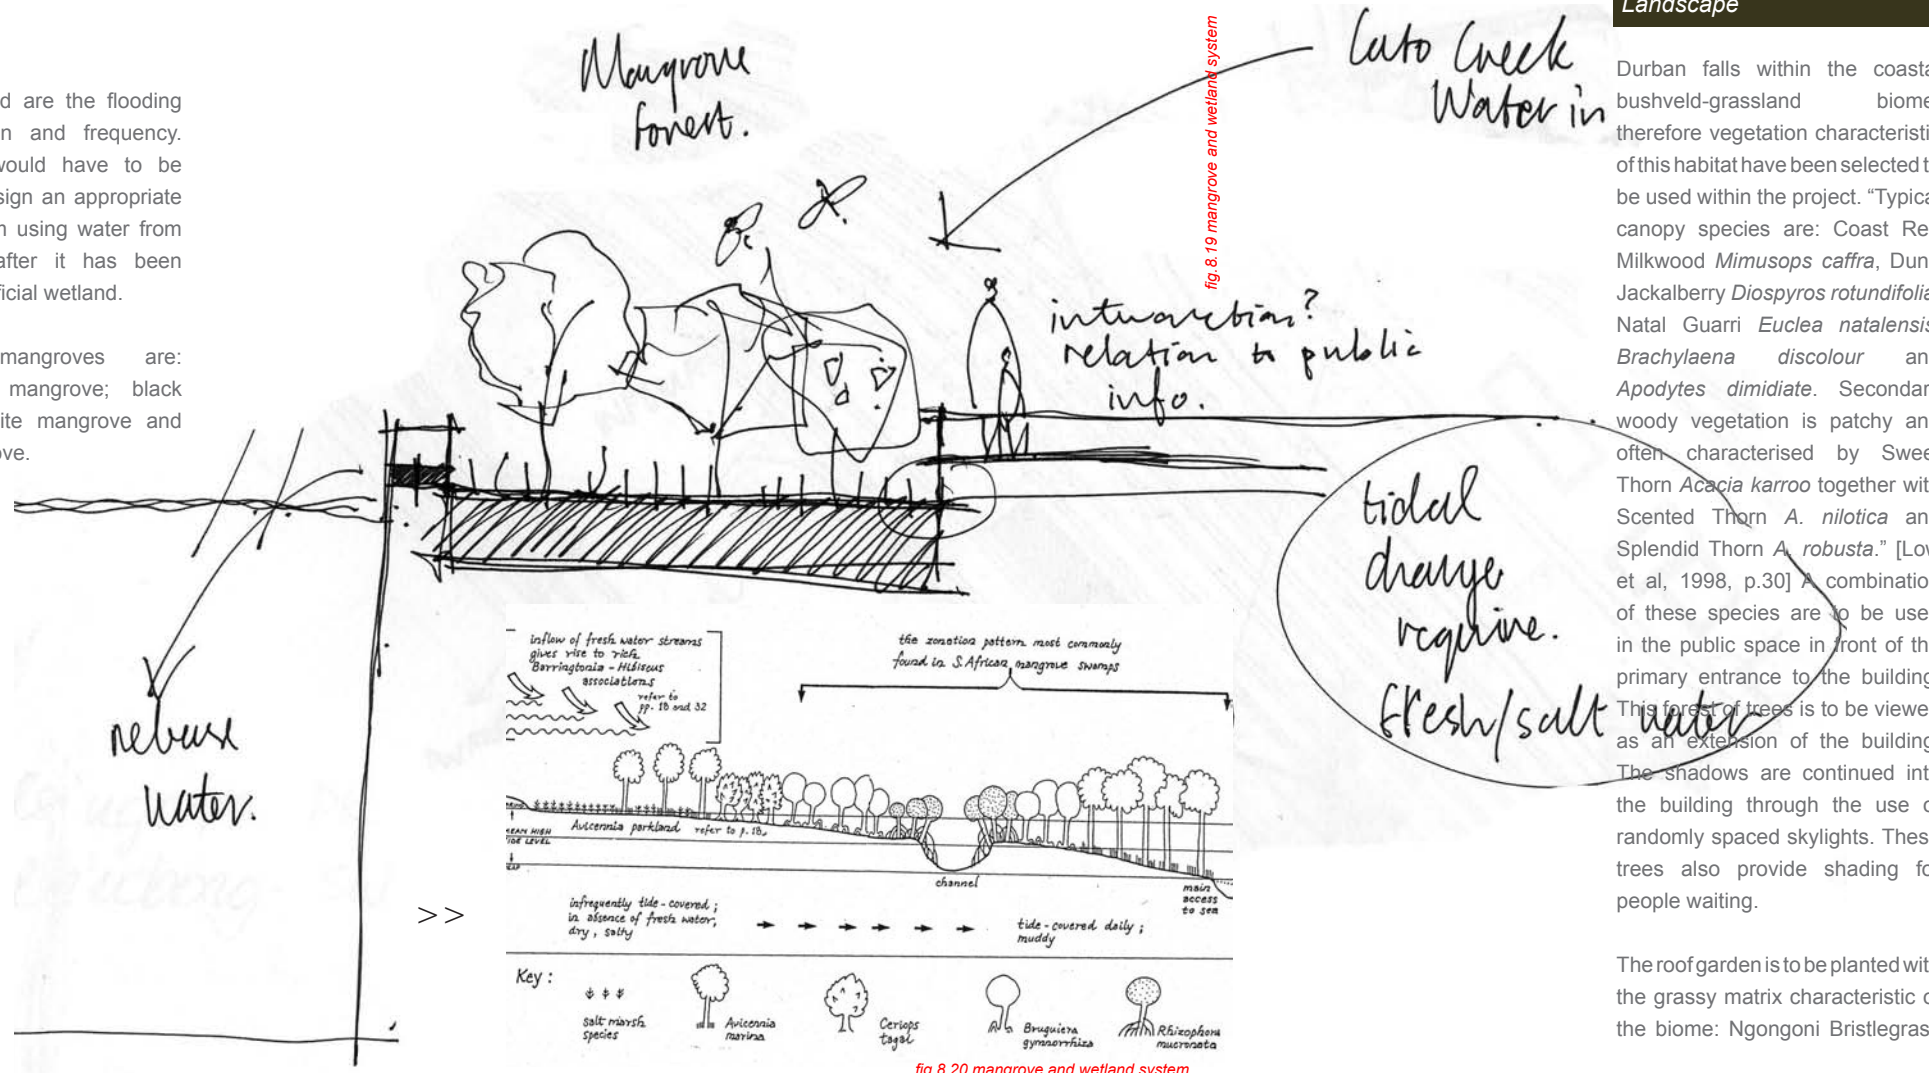 d are the flooding
n and frequency.
would have to be
sign an appropriate
n using water from
after it has been
ficial wetland.
mangroves are:
mangrove; black
ite mangrove and
ove.
Mangrove
forest.
fig.8.19 mangrove and wetland system
Cato Creek
Water in
interaction?
relation to public
info.
tidal
change
require.
fresh/salt water
release
water.
inflow of fresh water streams
gives rise to rich
Barringtonia - Hibiscus
associations
refer to
pp. 18 and 32
the zonation pattern most commonly
found in S. African mangrove swamps
MEAN HIGH
TIDE LEVEL
Avicennia parkland refer to p. 18.
channel
main
access
to sea
>>
infrequently tide-covered;
in absence of fresh water,
dry, salty
tide-covered daily;
muddy
Key:
salt marsh
species
Avicennia
marina
Ceriops
tagal
Bruguiera
gymnorrhiza
Rhizophora
mucronata
fig 8.20 mangrove and wetland system
Landscape
Durban falls within the coasta
bushveld-grassland biome
therefore vegetation characteristi
of this habitat have been selected t
be used within the project. “Typica
canopy species are: Coast Re
Milkwood Mimusops caffra, Dun
Jackalberry Diospyros rotundifolia
Natal Guarri Euclea natalensis
Brachylaena discolour an
Apodytes dimidiate. Secondar
woody vegetation is patchy an
often characterised by Swee
Thorn Acacia karroo together wit
Scented Thorn A. nilotica an
Splendid Thorn A. robusta.” [Low
et al, 1998, p.30] A combination
of these species are to be use
in the public space in front of th
primary entrance to the building
This forest of trees is to be viewe
as an extension of the building
The shadows are continued int
the building through the use o
randomly spaced skylights. Thes
trees also provide shading fo
people waiting.
The roof garden is to be planted wit
the grassy matrix characteristic o
the biome: Ngongoni Bristlegras